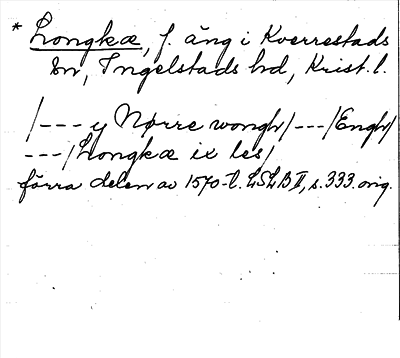 * Longkæ, f. äng i Kverrestads
sn, Ingelstads hd, Krist. l.
/--- y Nørre wongh/---/Engh/
---/Longkæ ix les/
förra delen av 1570-t. LSLB II, s. 333. orig.